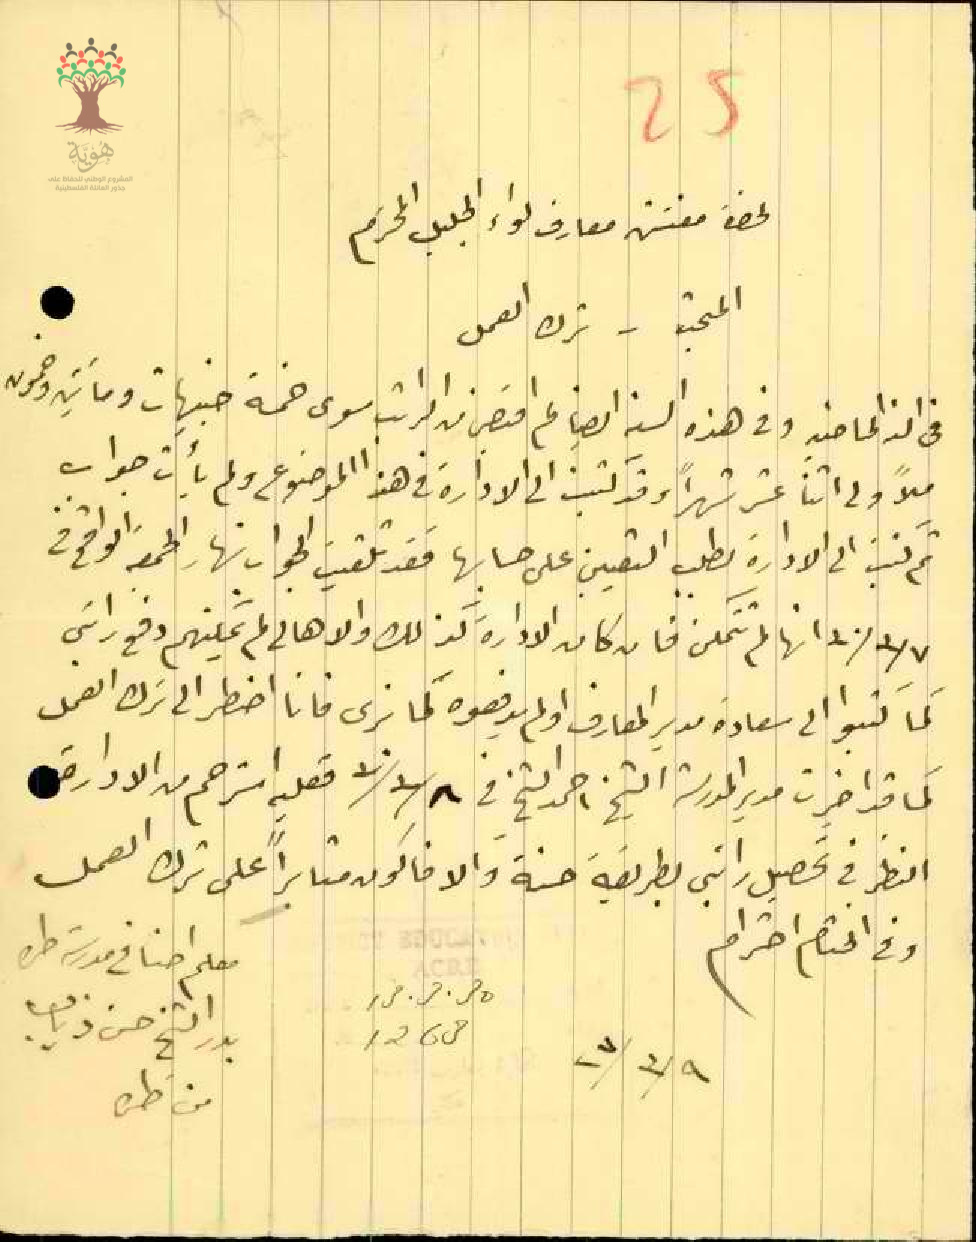 هُوِيَّة
المشروع الوطني للحفاظ على
جذور العائلة الفلسطينية
25
لحضرة مفتش معارف لواء الجليل المحترم
المبحث - ترك العمل
في السنة الماضية وفي هذه السنة ايضا لم اقبض من الراتب سوى خمسة جنيهات ومايتين وخمسون
ملاً ولي اثنا عشر شهراً وقد كتبت الى الادارة في هذا الموضوع ولم يأت جواب
ثم كتبت الى الادارة بطلب التعيين على حسابها فقد تلقيت الجواب نهار الجمعة الواقع في
انها لم تتمكن فان كان الادارة كذلك والاهالي لم يمكنهم دفع راتبي
كما كتبوا الى سعادة مدير المعارف او لم يدفعوه كما نرى فانا اضطر الى ترك العمل
كما قد اخبرت مدير المدرسة الشيخ احمد الشيخ في فعليه استرحم من الادارة
النظر في تحصيل راتبي بطريقة حسنة والا فاكون مثابراً على ترك العمل
وفي الختام احترام
معلم في مدرسة
بدر الشيخ حسن
من
EDUCAT
ACRE